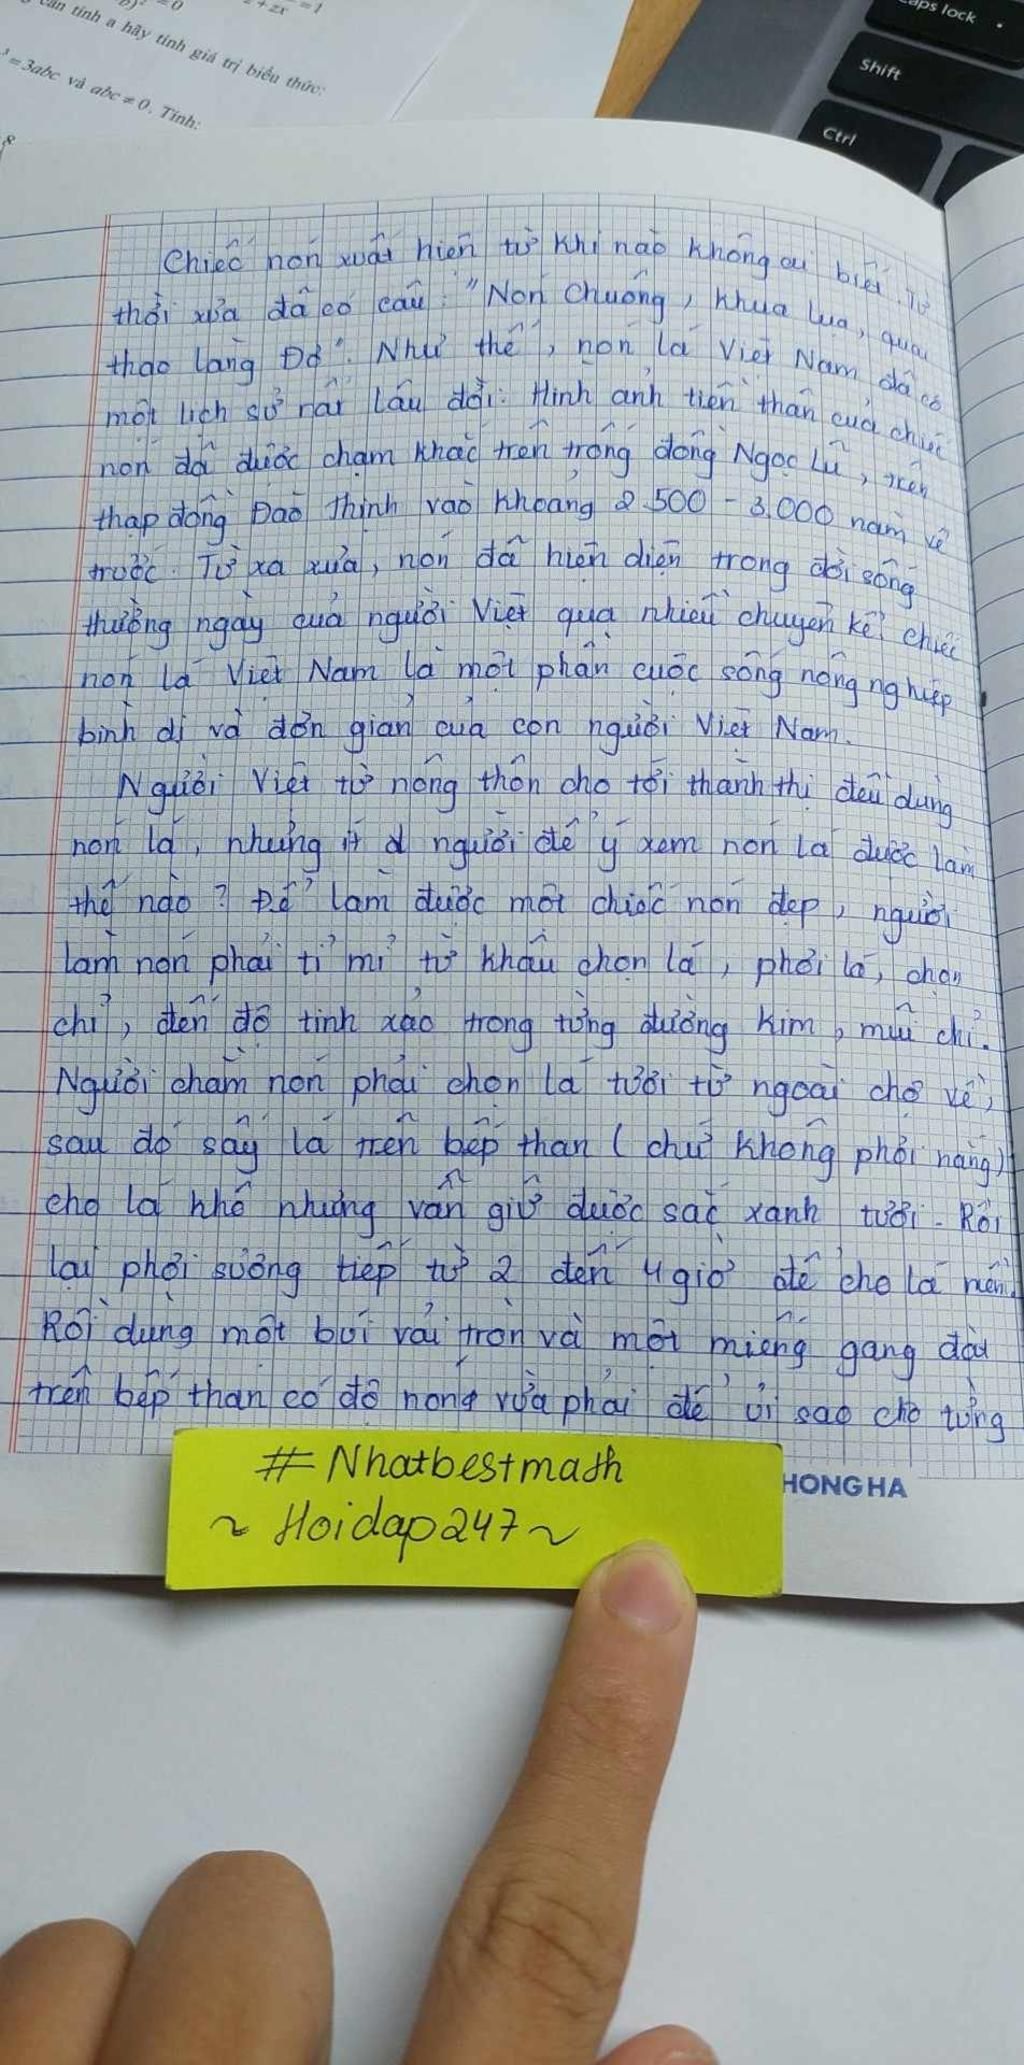 căn tính a hãy tính giá trị biểu thức:
= 3abc và abc ≠ 0. Tính:
Caps lock
Shift
Ctrl
Chiếc nón xuất hiện từ khi nào không ai biết. Từ
thời xưa đã có câu: "Nón Chuông, khua lụa, quai
thao làng Đơ". Như thế, nón lá Việt Nam đã có
một lịch sử rất lâu đời. Hình ảnh tiền thân của chiếc
nón đã được chạm khắc trên trống đồng Ngọc Lũ, trên
thạp đồng Đào Thịnh vào khoảng 2.500 - 3.000 năm về
trước. Từ xa xưa, nón đã hiện diện trong đời sống
thường ngày của người Việt qua nhiều chuyện kể, chiếc
nón lá Việt Nam là một phần cuộc sống nông nghiệp
bình dị và đơn giản của con người Việt Nam.
Người Việt từ nông thôn cho tới thành thị đều dùng
nón lá, nhưng ít người để ý xem nón lá được làm
thế nào? Để làm được một chiếc nón đẹp, người
làm nón phải tỉ mỉ từ khâu chọn lá, phơi lá, chọn
chỉ, đến độ tinh xảo trong từng đường kim, mũi chỉ.
Người chằm nón phải chọn lá tươi từ ngoài chợ về,
sau đó sấy lá trên bếp than (chứ không phơi nắng)
cho lá khô nhưng vẫn giữ được sắc xanh tươi. Rồi
lại phơi sương tiếp từ 2 đến 4 giờ để cho lá mềm.
Rồi dùng một búi vải tròn và một miếng gang đặt
trên bếp than có độ nóng vừa phải để ủi sao cho từng
HONG HA
#Nhatbestmath
~ Hoidap247 ~